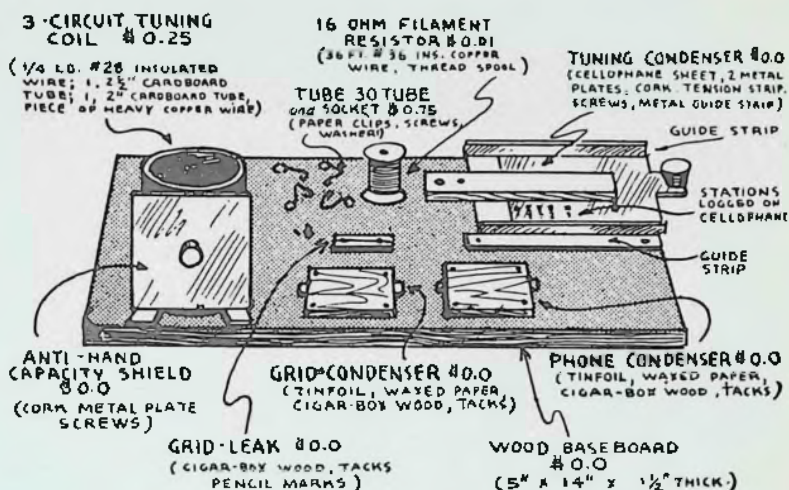 3-CIRCUIT TUNING
COIL $0.25
(1/4 LB. #28 INSULATED
WIRE; 1, 2½" CARDBOARD
TUBE; 1, 2" CARDBOARD TUBE,
PIECE OF HEAVY COPPER WIRE)
16 OHM FILAMENT
RESISTOR $0.01
(36 FT. #36 INS. COPPER
WIRE, THREAD SPOOL)
TUBE 30 TUBE
and SOCKET $0.75
(PAPER CLIPS, SCREWS,
WASHER)
TUNING CONDENSER $0.0
(CELLOPHANE SHEET, 2 METAL
PLATES, CORK. TENSION STRIP.
SCREWS, METAL GUIDE STRIP)
GUIDE STRIP
STATIONS
LOGGED ON
CELLOPHANE
GUIDE
STRIP
ANTI-HAND
CAPACITY SHIELD
$0.0
(CORK METAL PLATE
SCREWS)
GRID CONDENSER $0.0
(TINFOIL, WAXED PAPER,
CIGAR-BOX WOOD, TACKS)
PHONE CONDENSER $0.0
(TINFOIL, WAXED PAPER,
CIGAR-BOX WOOD, TACKS)
GRID-LEAK $0.0
(CIGAR-BOX WOOD, TACKS
PENCIL MARKS)
WOOD BASEBOARD
$0.0
(5" x 14" x 1½" THICK.)